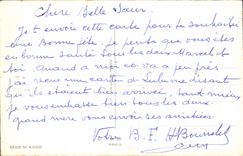 Chère Belle Sœur.
Je t envoie cette carte pour te souhaiter
une Bonne fête, je pense que vous êtes
en bonne santé tous les deux Marcel et
toi. Quand a moi ca va a peu près
J'ai reçu une carte de
qu'ils étaient bien arrivés, tant mieux
je vous embrasse bien tous les deux.
grand mère vous envoie ses amitiés
Votre B. F.
SÉRIE N° 4.000
PARIS